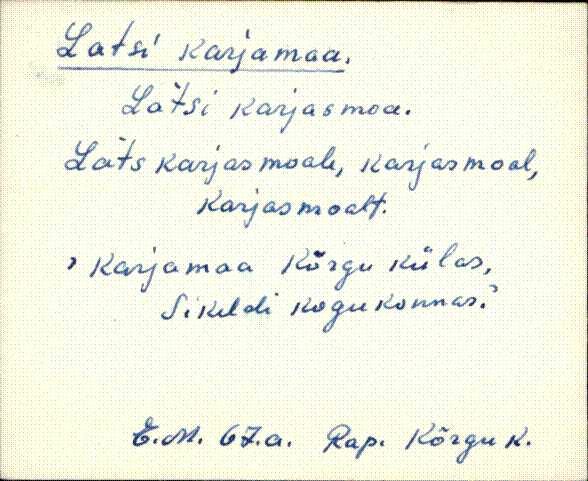 Latsi karjamaa.
Lätsi karjasmoa.
Läts karjasmoale, karjasmoal,
karjasmoalt.
, karjamaa Kõrgu külas,
Sikeldi kogukonnas.
E.M. 67.a. Rap. Kõrgu k.